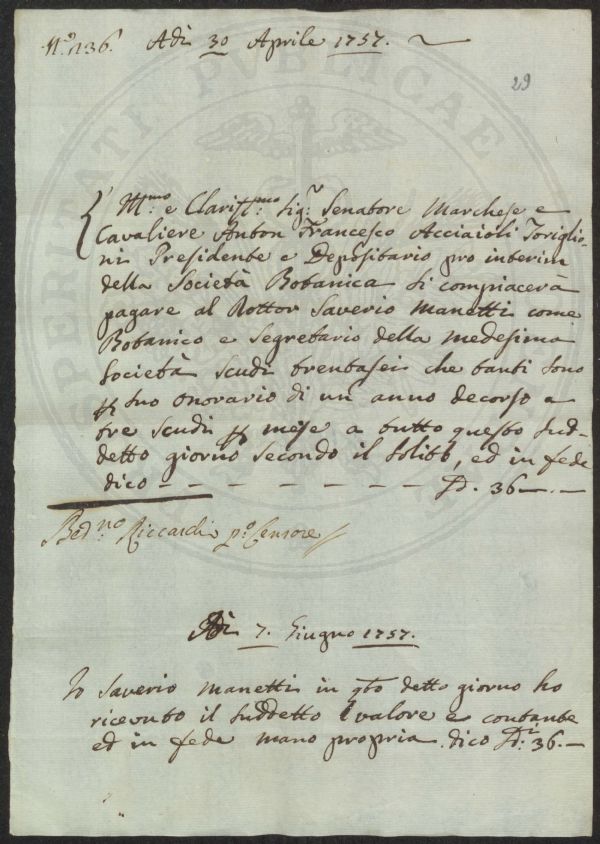 N.º 136. Adì 30 Aprile 1757.
29
Ill.mo e Clariss.mo Sig.r Senatore Marchese e
Cavaliere Anton Francesco Acciaioli Toriglio-
ni Presidente e Depositario pro interim
della Società Botanica si compiacerà
pagare al Dottor Saverio Manetti come
Botanico e Segretario della medesima
Società scudi trentasei che tanti sono
p suo onorario di un anno decorso a
tre scudi p mese a tutto questo sud-
detto giorno secondo il solito, ed in fede
dico - - - - - - - - 36 -.-
Bed.no Riccardi p.º Censore
Adì 7. Giugno 1757.
Io Saverio Manetti in qto detto giorno ho
ricevuto il suddetto valore e contante
ed in fede mano propria dico 36.-
SPERITATI PUBLICAE